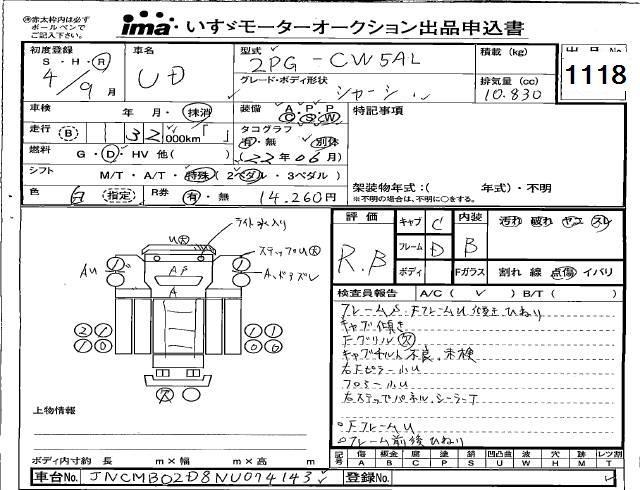 ㊟赤太枠内は必ず
ボールペンで
ご記入下さい。
ima いすゞモーターオークション出品申込書
初度登録
S・H・R
4/9月
車名
UD
型式
2PG-CW5AL
グレード・ボディ形状
シャーシ
積載 (kg)
排気量 (cc)
10.830
出品No
1118
車検 年・月・抹消
走行 (B) 32,000km「 」
燃料 G・D・HV 他( )
シフト M/T・A/T・特殊(2ペダル・3ペダル)
色 白 (指定) R券 有・無 14.260円
装備 A・P・P
C・S・W
タコグラフ
有・無 別体
(22年06月)
特記事項
架装物年式:( 年式)・不明
※不明の場合は、不明に○をする。
ライト水入り
U大
ステップU大
AU
AP
A
欠
上物情報
ボディ内寸約 長 m×幅 m×高 m
車台No. JNCMB02D8NU074143
登録No.
評価
R.B
キャブ C
フレーム D
ボディ
内装 B
汚れ 破れ ヤニ スレ
Fガラス 割れ 線 点傷 イバリ
検査員報告 A/C( ✓ ) B/T( )
フレームS.FフレームU 傾き ひねり
キャブ傾き
Fグリル欠
キャブチルト不良.未検
右Fピラー小U
フロアー小U
右ステップパネル.シーラーT
○FフレームU
○フレーム前後ひねり
記号 傷 鈑金 腐 塗 錆 凹凸曲 波 穴 跡 レツ割
A B C P S U W H M T